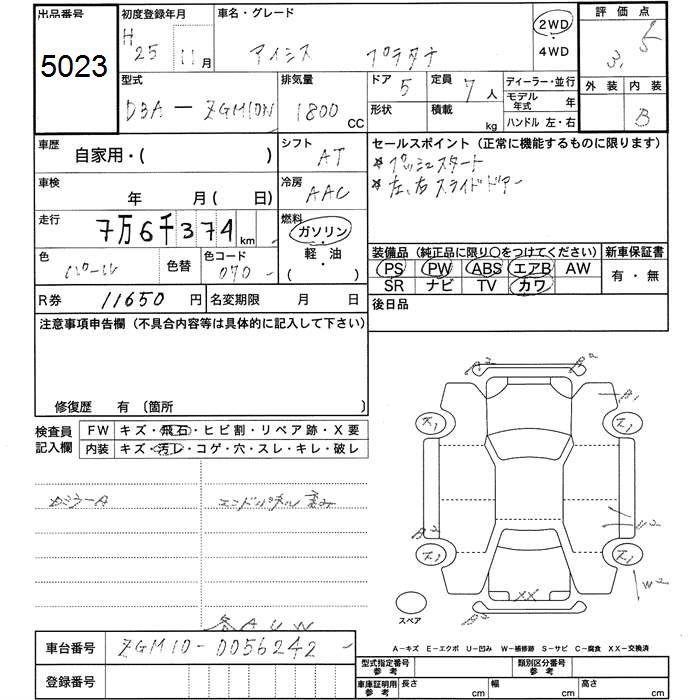 出品番号 初度登録年月 車名・グレード 2WD 評価点
5023 H 25 11月 アイシス プラタナ 4WD 3.5
型式 排気量 ドア 5 定員 7人 ディーラー・並行 外装 内装
DBA － ZGM10W 1800 CC 形状 積載 kg モデル年式 年 B
ハンドル 左・右
車歴 自家用・( ) シフト AT セールスポイント (正常に機能するものに限ります)
* プッシュスタート
車検 年 月( 日) 冷房 AAC * 左、右スライドドアー
走行 7万6千374km 燃料 ガソリン
軽・油
( )
色 パール 色替 色コード 070 装備品 (純正品に限り○をつけてください) 新車保証書
PS PW ABS エアB AW 有・無
SR ナビ TV カワ
R券 11650円 名変期限 月 日 後日品
注意事項申告欄 (不具合内容等は具体的に記入して下さい)
修復歴 有 〔箇所 〕
検査員記入欄 FW キズ・飛石・ヒビ割・リペア跡・X要
内装 キズ・汚レ・コゲ・穴・スレ・キレ・破レ
エンドパネル 歪み
各 A U W
A2 A2
A1
X1 X1
A2 W2
X1 X1
W2
XX
スペア
A－キズ E－エクボ U－凹み W－補修跡 S－サビ C－腐食 XX－交換済
車台番号 ZGM10-0056242
登録番号
型式指定番号 参考 類別区分番号 参考
車庫証明用 参考 長さ cm 幅 cm 高さ cm